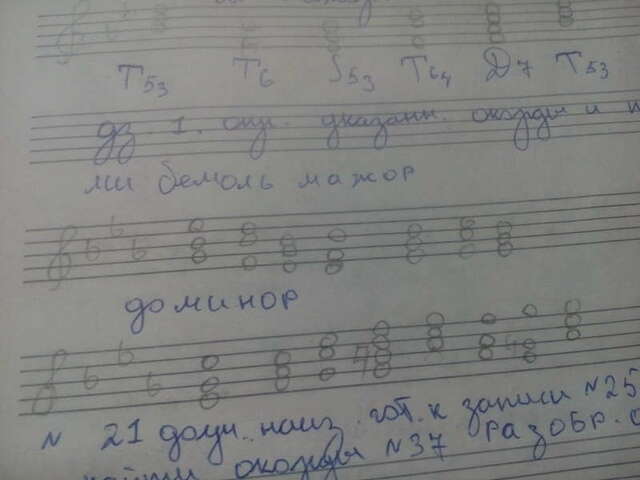 T53 T6 S53 T64 Д7 T53
дз 1. опр. указанн. аккорды и
ми бемоль мажор
до минор
N 21 доуч. наиз. гот. к записи N25
найти аккорды N37 разобр.